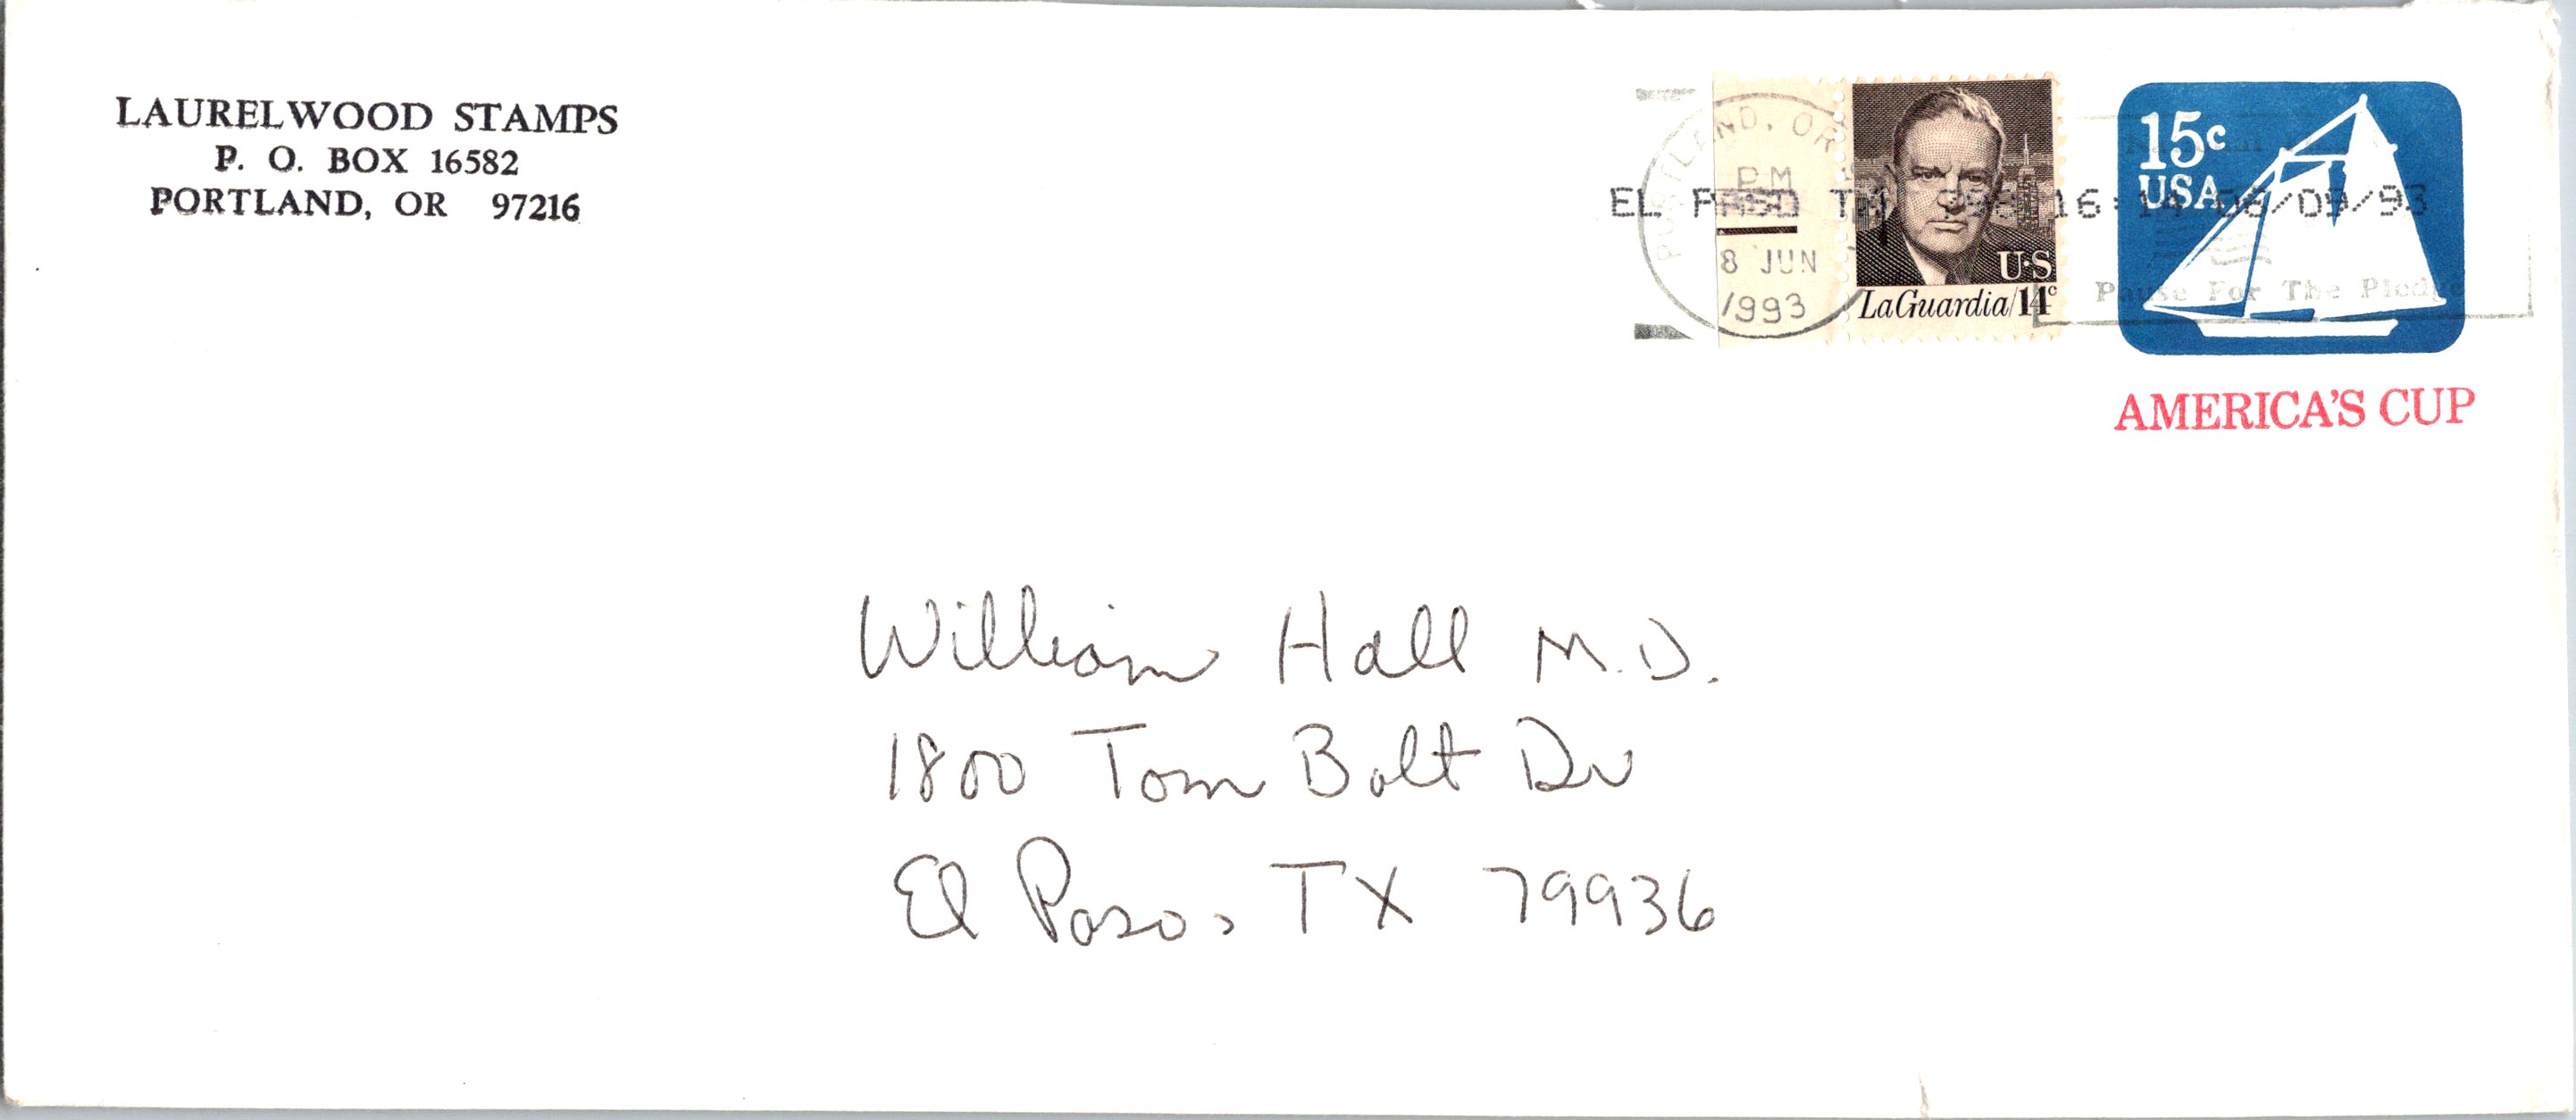 LAURELWOOD STAMPS
P. O. BOX 16582
PORTLAND, OR 97216
PORTLAND, OR
PM
8 JUN
1993
EL PASO TX 16:14 06/09/93
U.S
LaGuardia/14c
15c
USA
Pause For The Pledge
AMERICA'S CUP
William Hall M.D.
1800 Tom Bolt Dr
El Paso, TX 79936